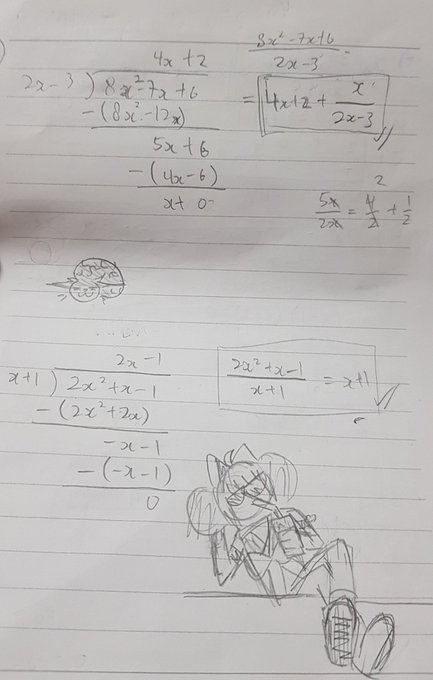 4x + 2
2x - 3 ) 8x² - 7x + 6
- (8x² - 12x)
5x + 6
- (4x - 6)
x + 0
8x² - 7x + 6
2x - 3
= 4x + 2 + x / 2x - 3
2
5x/2x = 4/2 + 1/2
2x - 1
x + 1 ) 2x² + x - 1
- (2x² + 2x)
- x - 1
- (-x - 1)
0
2x² + x - 1 / x + 1 = x + 1